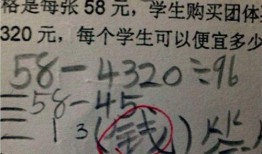 格是每张58元，学生购买团体
320元，每个学生可以便宜多少
58-4320÷96
=58-45
=13(钱)